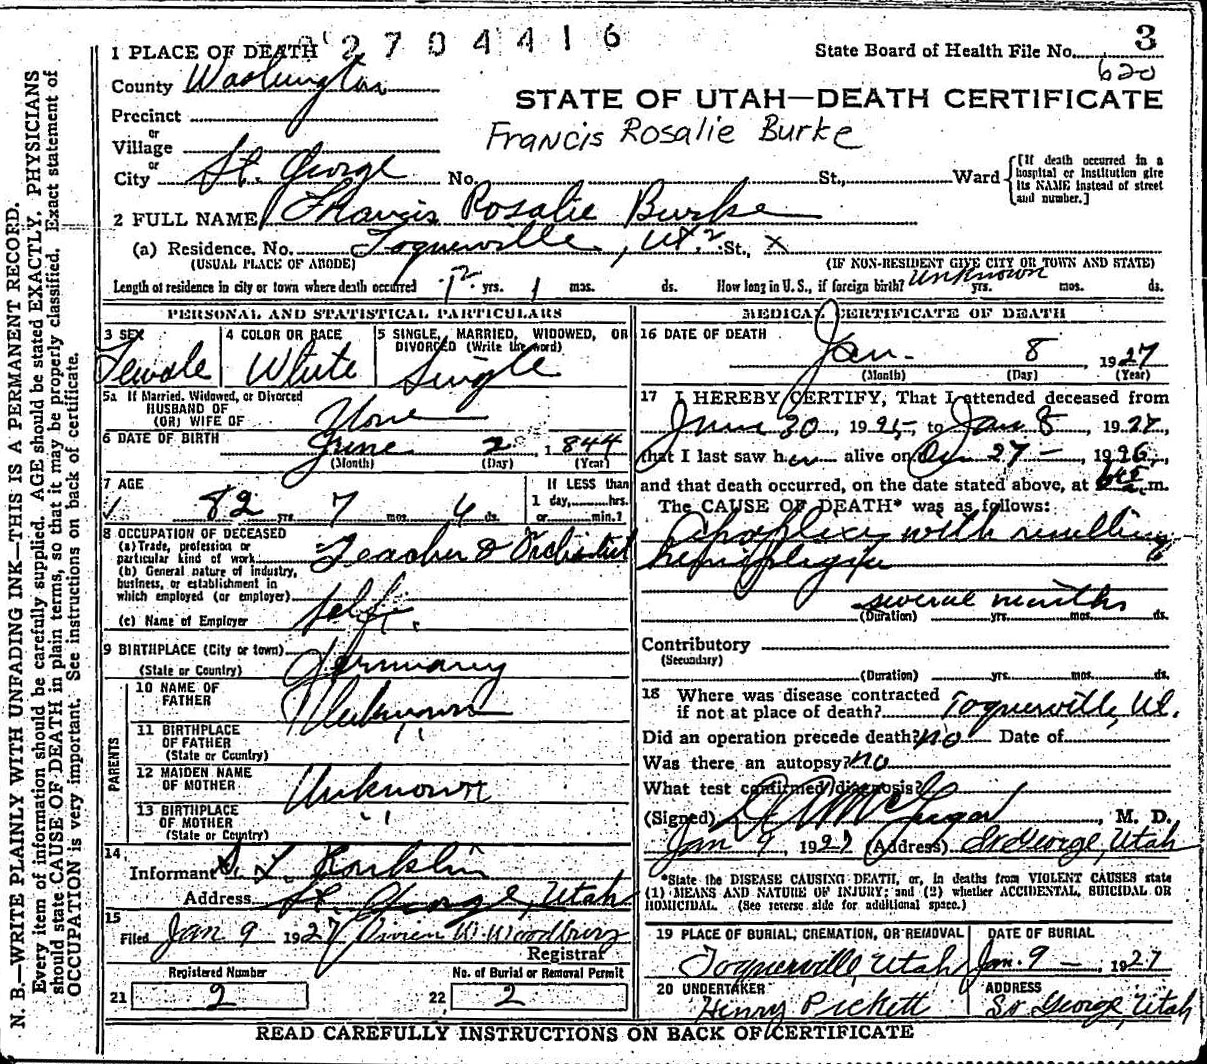 2704416
1 PLACE OF DEATH
State Board of Health File No. 3
620
County Washington
STATE OF UTAH—DEATH CERTIFICATE
Precinct
Francis Rosalie Burke
or
Village
or
City St. George No. St., Ward
[If death occurred in a hospital or institution give its NAME instead of street and number.]
2 FULL NAME Francis Rosalie Burke
(a) Residence. No. Toquerville, Ut. St., X
(USUAL PLACE OF ABODE) (IF NON-RESIDENT GIVE CITY OR TOWN AND STATE)
Length of residence in city or town where death occurred yrs. 1 mos. ds. How long in U. S., if foreign birth? Unknown yrs. mos. ds.
PERSONAL AND STATISTICAL PARTICULARS
3 SEX
Female
4 COLOR OR RACE
White
5 SINGLE, MARRIED, WIDOWED, OR DIVORCED (Write the word)
Single
5a If Married, Widowed, or Divorced
HUSBAND OF
(OR) WIFE OF None
6 DATE OF BIRTH June 2 1844
(Month) (Day) (Year)
7 AGE
82 yrs. 7 mos. 6 ds.
If LESS than
1 day, hrs.
or min.?
8 OCCUPATION OF DECEASED
(a) Trade, profession or
particular kind of work Teacher & Orchardist
(b) General nature of industry,
business, or establishment in
which employed (or employer)
self.
(c) Name of Employer
9 BIRTHPLACE (City or town)
(State or Country) Germany
PARENTS
10 NAME OF
FATHER Unknown
11 BIRTHPLACE
OF FATHER "
(State or Country)
12 MAIDEN NAME
OF MOTHER Unknown
13 BIRTHPLACE
OF MOTHER "
(State or Country)
14
Informant
Address St. George, Utah
15
Filed Jan 9 1927 Vivien W. Woodbury
Registrar
Registered Number
21 2
No. of Burial or Removal Permit
22 2
MEDICAL CERTIFICATE OF DEATH
16 DATE OF DEATH
Jan. 8 1927
(Month) (Day) (Year)
17 I HEREBY CERTIFY, That I attended deceased from
30, 1925, to Jan 8, 1927,
that I last saw her alive on 27, 1926,
and that death occurred, on the date stated above, at m.
The CAUSE OF DEATH* was as follows:
Apoplexy with resulting
hemiplegia
several months
(Duration) yrs. mos. ds.
Contributory
(Secondary)
(Duration) yrs. mos. ds.
18 Where was disease contracted
if not at place of death? Toquerville, Ut.
Did an operation precede death? no Date of
Was there an autopsy? no
What test confirmed diagnosis?
(Signed) McGregor, M. D.
Jan 9, 1927 (Address) St George, Utah
*State the DISEASE CAUSING DEATH, or, in deaths from VIOLENT CAUSES state
(1) MEANS AND NATURE OF INJURY; and (2) whether ACCIDENTAL, SUICIDAL OR
HOMICIDAL. (See reverse side for additional space.)
19 PLACE OF BURIAL, CREMATION, OR REMOVAL
Toquerville, Utah
DATE OF BURIAL
Jan. 9 1927
20 UNDERTAKER
Henry Pickett
ADDRESS
St George, Utah
READ CAREFULLY INSTRUCTIONS ON BACK OF CERTIFICATE
N. B.—WRITE PLAINLY WITH UNFADING INK—THIS IS A PERMANENT RECORD.
Every item of information should be carefully supplied. AGE should be stated EXACTLY. PHYSICIANS
should state CAUSE OF DEATH in plain terms, so that it may be properly classified. Exact statement of
OCCUPATION is very important. See instructions on back of certificate.